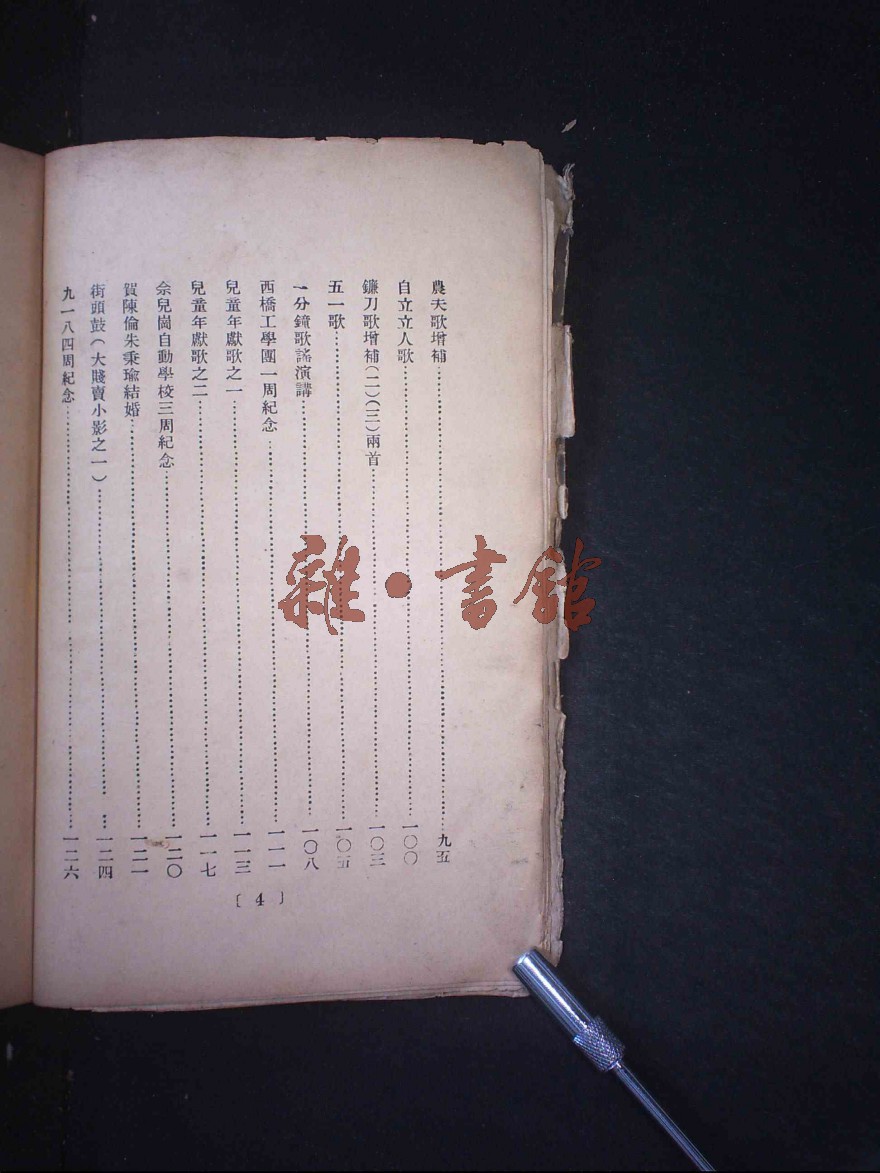 農夫歌增補……九五
自立立人歌……一〇〇
鐮刀歌增補(二)(三)兩首……一〇三
五一歌……一〇五
一分鐘歌謠演講……一〇八
西橋工學團一周紀念……一一一
兒童年獻歌之一……一一三
兒童年獻歌之二……一一七
佘兒崗自動學校三周紀念……一二〇
賀陳倫朱秉瑜結婚……一二二
街頭鼓(大賤賣小影之一)……一二四
九一八四周紀念……一二六
〔4〕
雜·書館